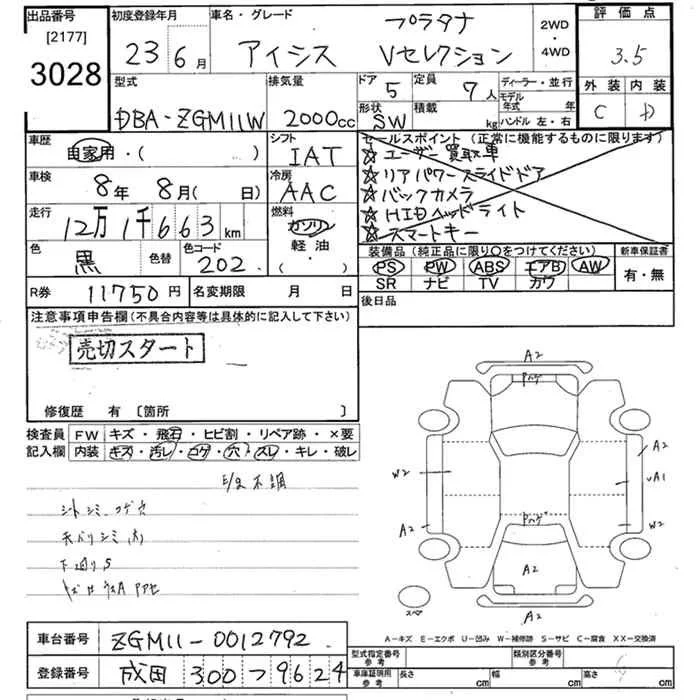 出品番号
[2177]
3028
初度登録年月
23 6 月
車名・グレード
プラタナ
アイシス Vセレクション
2WD
・
4WD
評価点
3.5
外装 内装
C D
型式
DBA-ZGM11W
排気量
2000cc
ドア 5
定員 7 人
形状 SW
積載 kg
ディーラー・並行
モデル
年式 年
ハンドル 左・右
車歴
自家用・( )
シフト
IAT
車検
8年 8月( 日)
冷房
AAC
走行
12万1千663 km
燃料
ガソリン
軽油
・( )
色
黒
色替
色コード
202
セールスポイント (正常に機能するものに限ります)
☆ユーザー買取車
☆リアパワースライドドア
☆バックカメラ
☆HIDヘッドライト
☆スマートキー
装備品 (純正品に限り○をつけてください)
PS PW ABS エアB AW
SR ナビ TV カワ
新車保証書
有・無
R券 11750 円
名変期限 月 日
後日品
注意事項申告欄 (不具合内容等は具体的に記入して下さい)
売切スタート
修復歴 有 〔箇所 〕
検査員
記入欄
FW キズ・飛石・ヒビ割・リペア跡・×要
内装 キズ・汚レ・コゲ・穴・スレ・キレ・破レ
シートシミ コゲ穴
天バリシミ
下廻りS
A2
A2
W2
A1
A2
W2
A2
A2
スペア
A-キズ E-エクボ U-凹み W-補修跡 S-サビ C-腐食 XX-交換済
車台番号 ZGM11-0012792
登録番号 成田 300 つ 9624
型式指定番号
参考
類別区分番号
参考
車庫証明用
参考
長さ cm
幅 cm
高さ cm